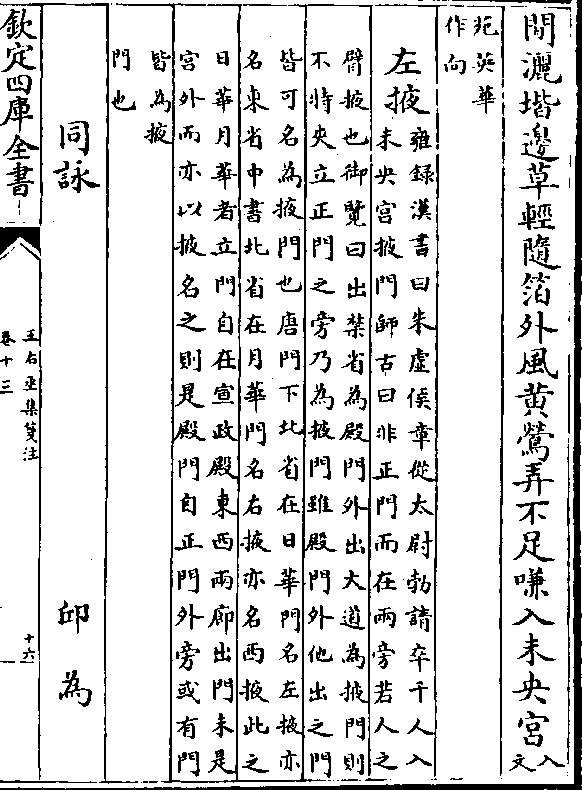 閒灑堦邊草輕隨箔外風黃鶯弄不足嗛入未央宮入文
苑英華
作向
左掖雍錄漢書曰朱虛侯章從太尉勃請卒千人入
未央宮掖門師古曰非正門而在兩旁若人之
臂掖也御覽曰出禁省為殿門外出大道為掖門則
不特夾立正門之旁乃為掖門雖殿門外他出之門
皆可名為掖門也唐門下北省在日華門名左掖亦
名東省中書北省在月華門名右掖亦名西掖此之
日華月華者立門自在宣政殿東西兩廊出門未是
宮外而亦以掖名之則是殿門自正門外旁或有門
皆為掖
門也
同詠 邱為
欽定四庫全書
王右丞集箋注
卷十三
十六